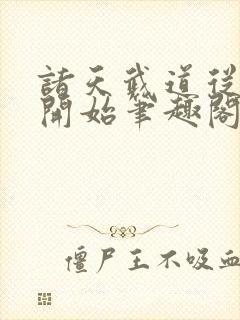 諸天武道從
開始筆趣閣
僵尸王不吸血